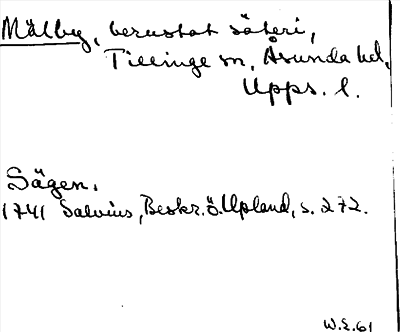 Mälby, berustat säteri,
Tillinge sn, Åsunda hd,
Upps. l.
Sägen.
1741 Salvius, Beskr. ö. Upland, s. 272.
W.E. 61